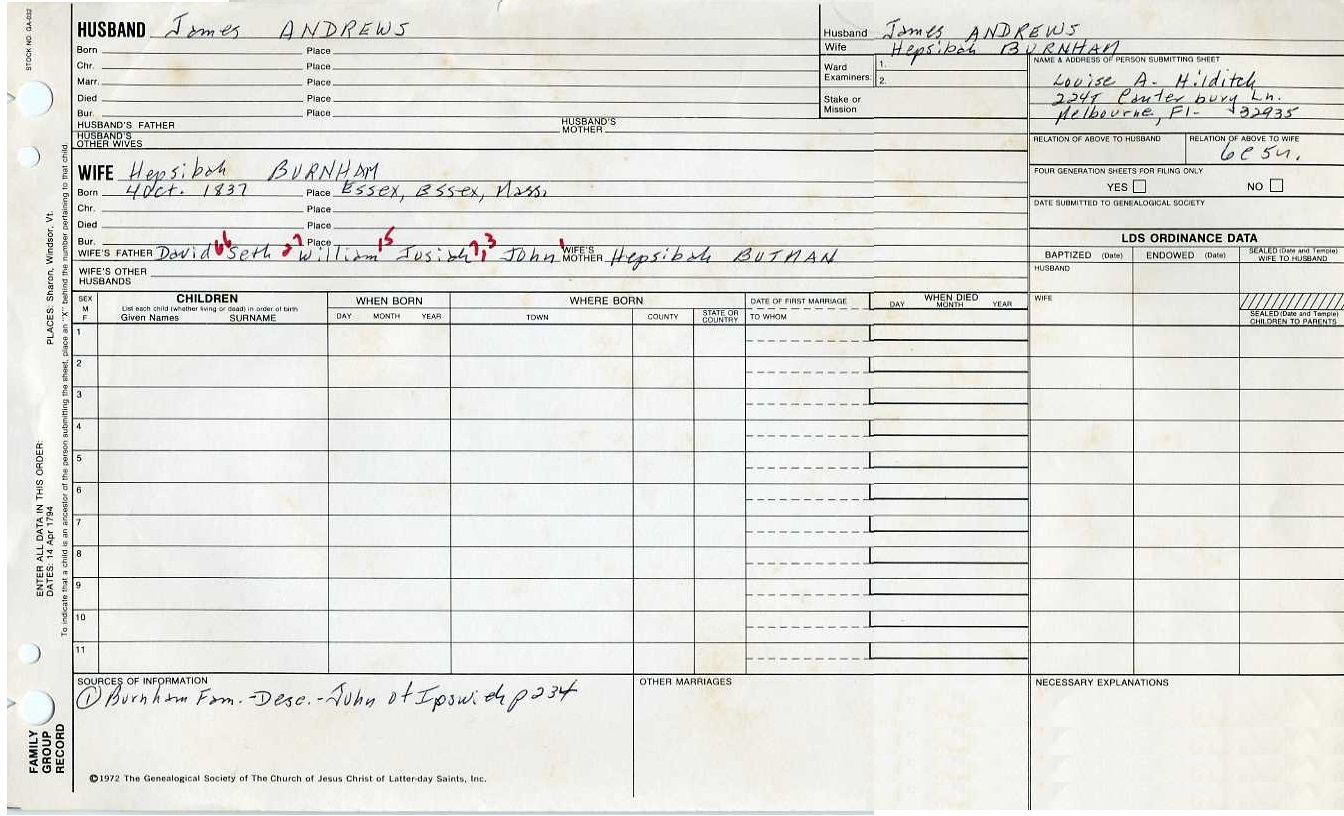 STOCK NO. GA-032
HUSBAND James ANDREWS
Born Place
Chr. Place
Marr. Place
Died Place
Bur. Place
HUSBAND'S FATHER HUSBAND'S MOTHER
HUSBAND'S OTHER WIVES
Husband James ANDREWS
Wife Hepsibah BURNHAM
Ward Examiners: 1.
2.
Stake or Mission
NAME & ADDRESS OF PERSON SUBMITTING SHEET
Louise A. Hilditch
Canterbury Ln.
Melbourne, Fl- 32935
RELATION OF ABOVE TO HUSBAND RELATION OF ABOVE TO WIFE
FOUR GENERATION SHEETS FOR FILING ONLY
YES NO
DATE SUBMITTED TO GENEALOGICAL SOCIETY
WIFE Hepsibah BURNHAM
Born 4 Oct. 1837 Place Essex, Essex, Mass.
Chr. Place
Died Place
Bur. Place
WIFE'S FATHER David Seth William Josiah John WIFE'S MOTHER Hepsibah BUTMAN
WIFE'S OTHER HUSBANDS
LDS ORDINANCE DATA
BAPTIZED (Date) ENDOWED (Date) SEALED (Date and Temple) WIFE TO HUSBAND
HUSBAND
WIFE
SEALED (Date and Temple) CHILDREN TO PARENTS
SEX M F
CHILDREN
List each child (whether living or dead) in order of birth
Given Names SURNAME
WHEN BORN
DAY MONTH YEAR
WHERE BORN
TOWN COUNTY STATE OR COUNTRY
DATE OF FIRST MARRIAGE
TO WHOM
WHEN DIED
DAY MONTH YEAR
1
2
3
4
5
6
7
8
9
10
11
SOURCES OF INFORMATION
① Burnham Fam.-Desc.-John of Ipswich p234
OTHER MARRIAGES
NECESSARY EXPLANATIONS
©1972 The Genealogical Society of The Church of Jesus Christ of Latter-day Saints, Inc.
FAMILY GROUP RECORD
ENTER ALL DATA IN THIS ORDER:
DATES: 14 Apr 1794
PLACES: Sharon, Windsor, Vt.
To indicate that a child is an ancestor of the person submitting the sheet, place an "X" behind the number pertaining to that child.